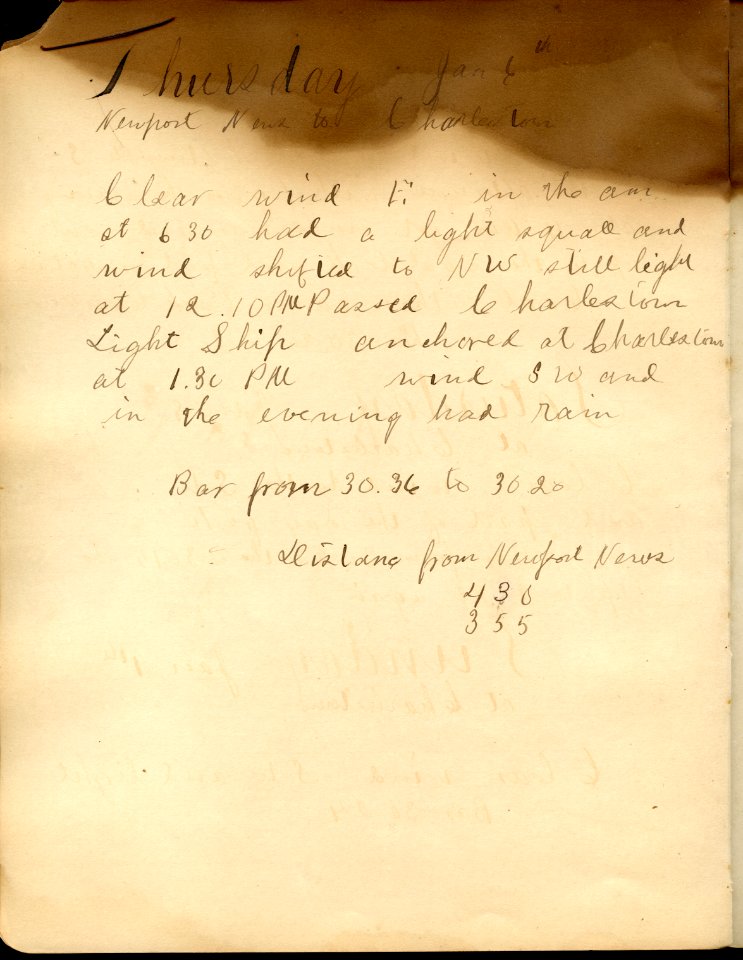 Thursday Jan 6th
Newport News to Charlestown
Clear wind E in the am
at 6 30 had a light squall and
wind shifted to NW still light
at 12.10 PM Passed Charlestown
Light Ship anchored at Charlestown
at 1.30 PM wind SW and
in the evening had rain
Bar from 30.36 to 30 20
Distanc from Newport News
430
355